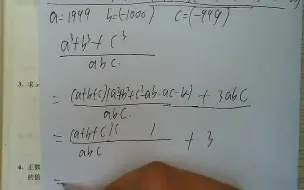 a=1999 b=(-1000) c=(-999)
a³+b³+c³
abc.
3. 求
= (a+b+c)(a²+b²+c²-ab-ac-bc) + 3abc
abc.
= (a+b+c)( ) + 3
abc
4. 正数
的值
=